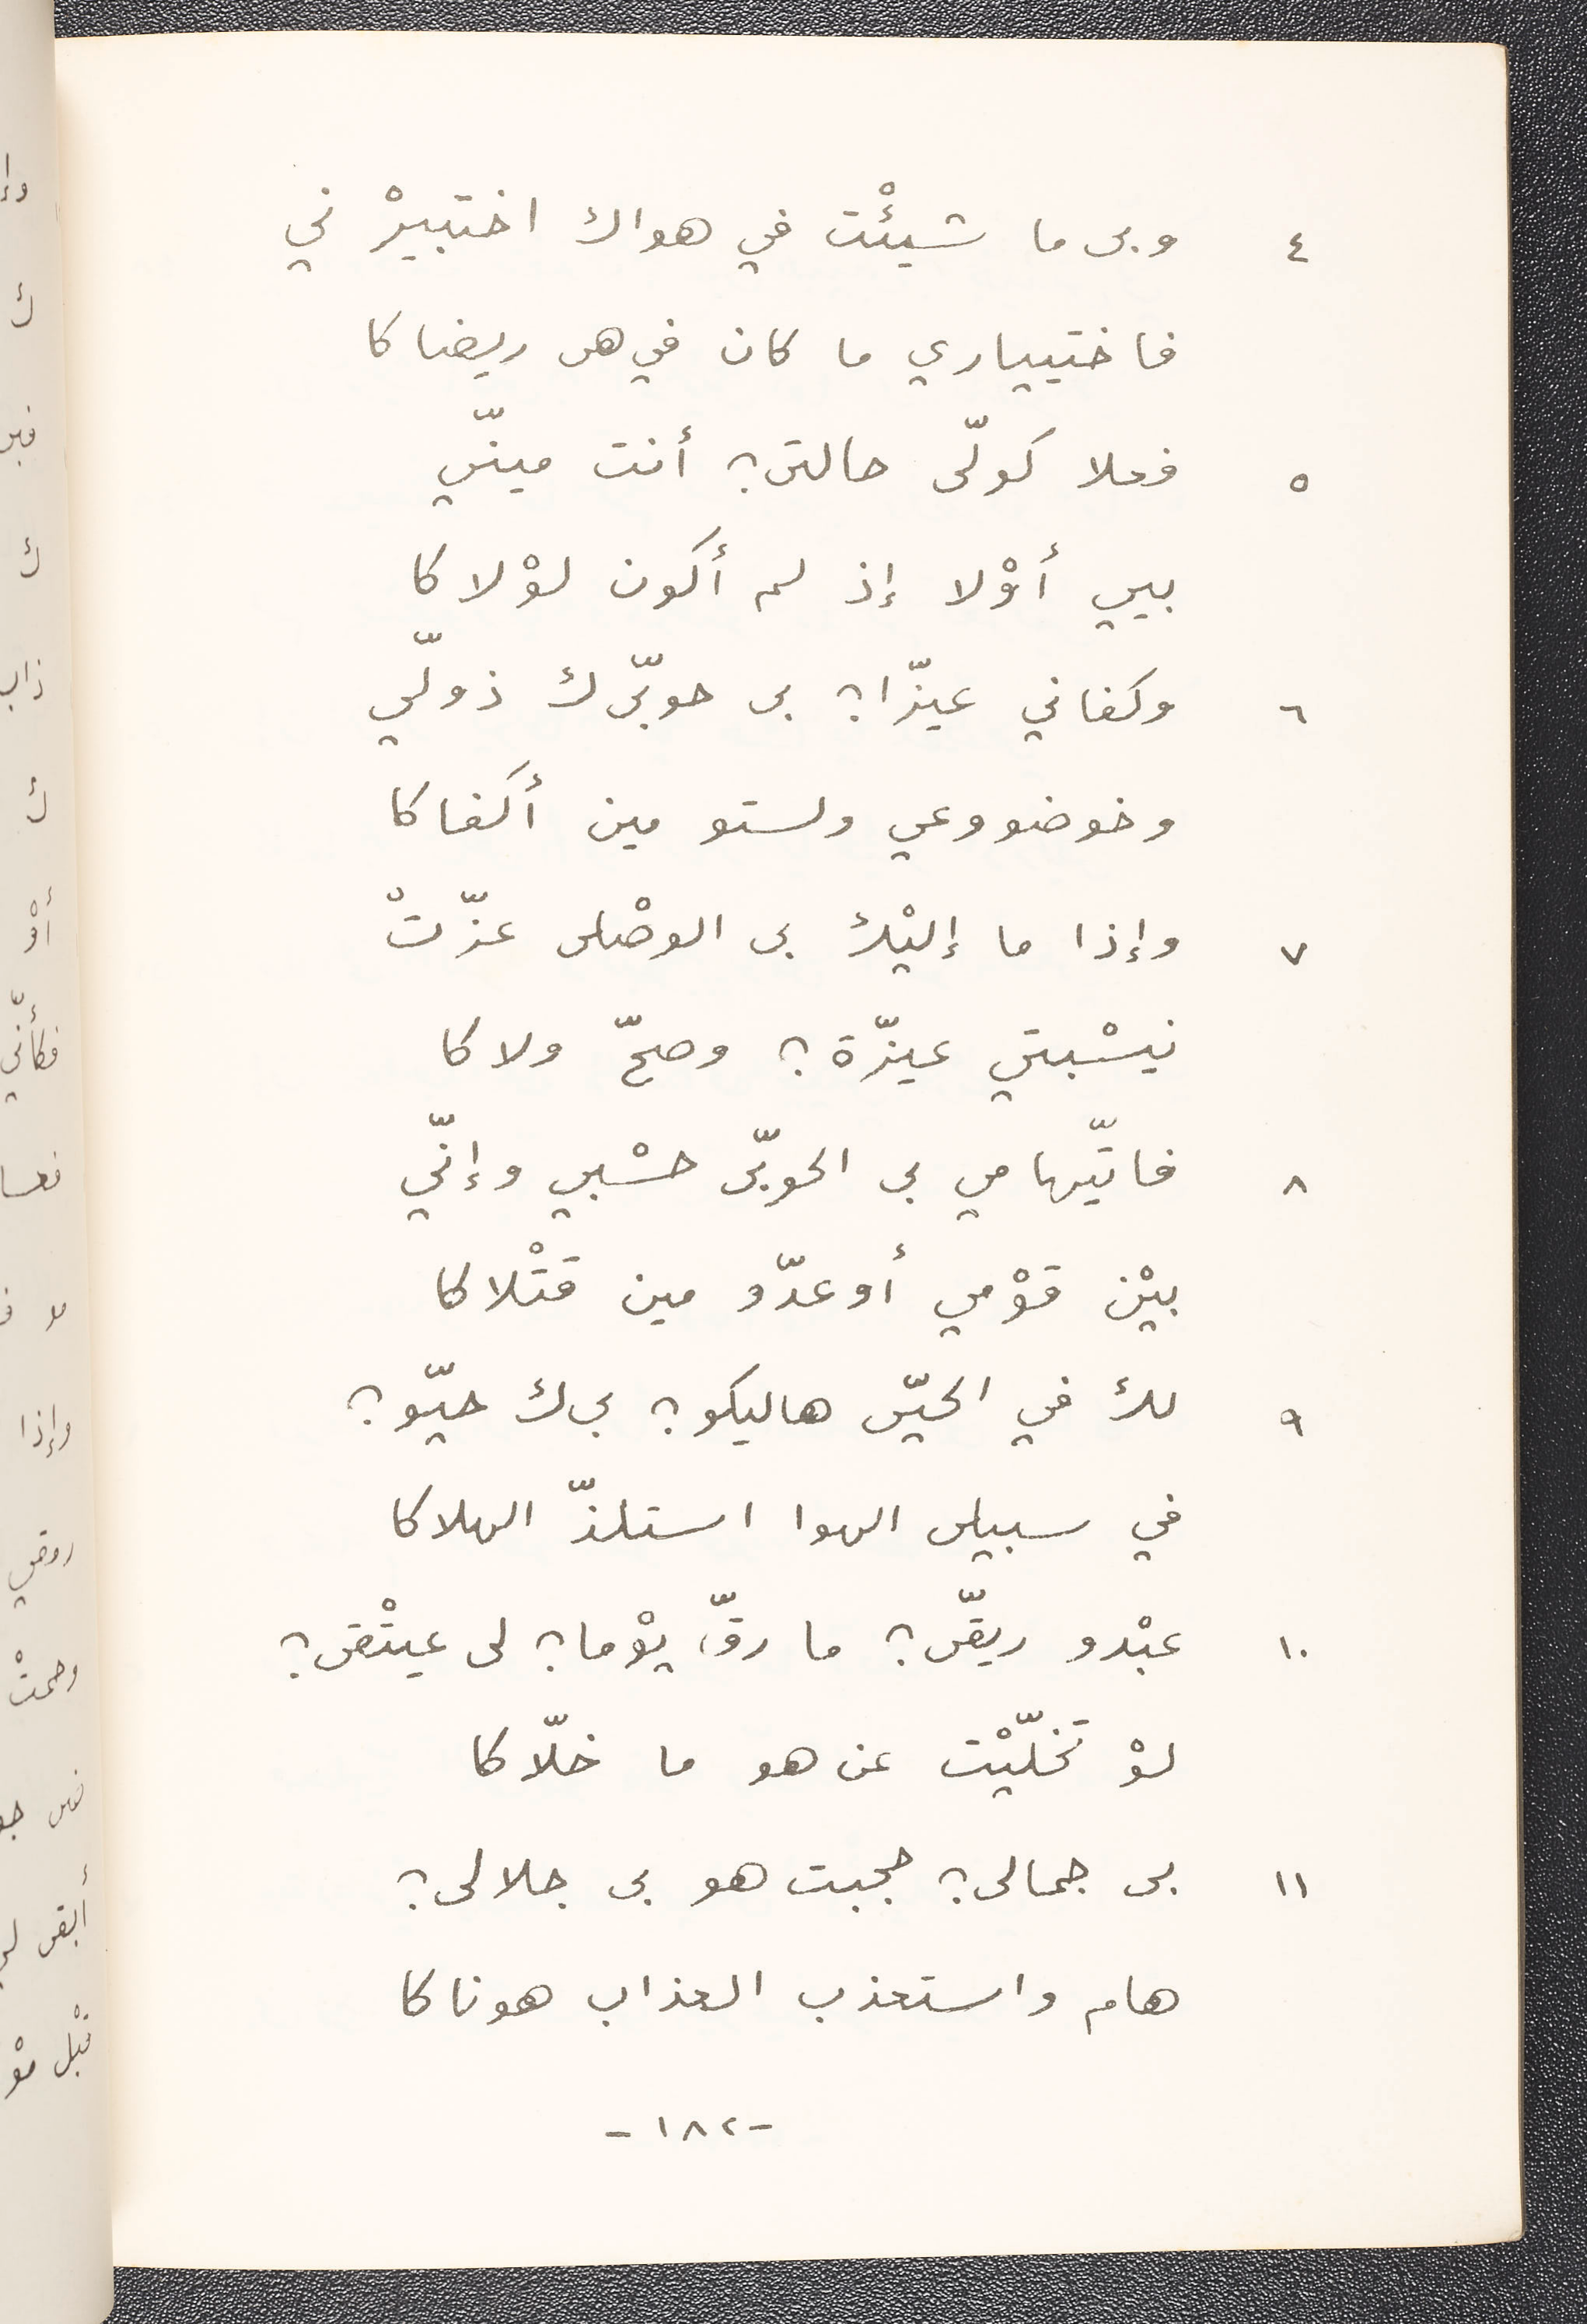 ٤ وبى ما شيئْت في هواك اختبيرْ ني
فاختيياري ما كان في هى ريضاكا
٥ فعلا كولّى حالتى؟ أنت مينّي
بيي أوْلا إذ لم أكون لوْلاكا
٦ وكفاني عيزّا؟ بى حوبّى ك ذولّي
وخوضووعي ولستو مين أكفاكا
٧ وإذا ما إليْك بى الوصْلى عزّتْ
نيسْبتي عيزّة؟ وصحّ ولاكا
٨ فاتّيهامي بى الحوبّى حسْبي وإنّي
بيْن قوْمي أوعدّو مين قتْلاكا
٩ لك في الحيّى هاليكو؟ بى ك حيّو؟
في سبيلى الهوا استلذّ الهلاكا
١٠ عبْدو ريقّى؟ ما رقّ يوْما؟ لى عيتْقى؟
لوْ تخلّيْت عن هو ما خلّاكا
١١ بى جمالى؟ حجبت هو بى جلالى؟
هام واستعذب العذاب هوناكا
-١٨٢-